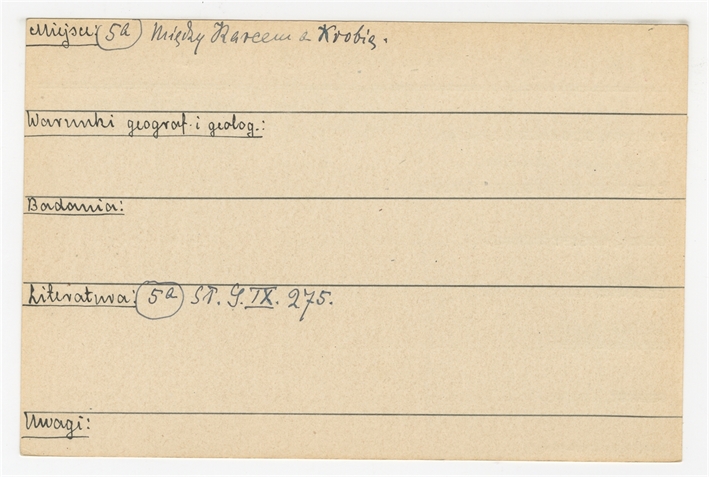 Miejsce: 5a Między Karcem a Krobią.
Warunki geograf. i geolog.:
Badania:
Literatura: 5a ST. G. IX. 275.
Uwagi: